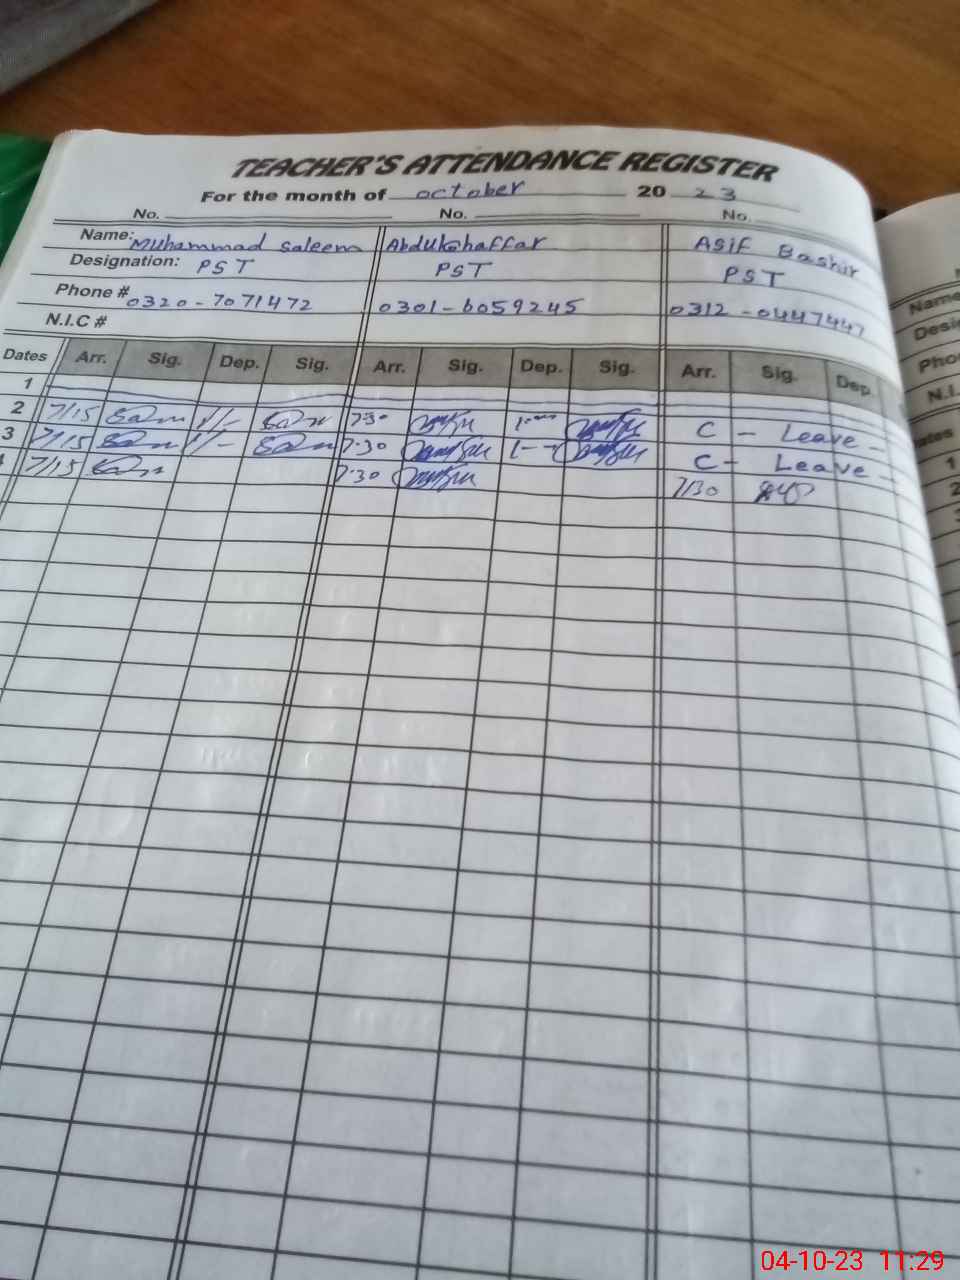 TEACHER'S ATTENDANCE REGISTER
For the month of october 20 23
No. No. No.
Name: Muhammad Saleem Abdulghaffar Asif Bashir
Designation: PST PST PST
Phone # 0320-7071472 0301-6059245 0312-0447447
N.I.C #
Dates Arr. Sig. Dep. Sig. Arr. Sig. Dep. Sig. Arr. Sig. Dep.
1
2 7/15 1/- 7:30 C - Leave -
3 7/15 1/- 7:30 C - Leave -
4 7/15 7:30 7/30
Name
Desi
Pho
N.I.
ates
1
2
04-10-23 11:29